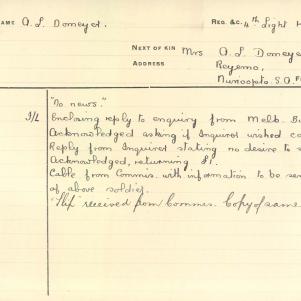 NAME A. L. Domeyer.
REG. &C. 4th Light H
NEXT OF KIN Mrs A. L. Domeye
ADDRESS Reyemo,
Nurioopta S.A.
"No news."
I/L Enclosing reply to enquiry from Melb. B
Acknowledged asking if Inquirer wished co
Reply from Inquirer stating no desire to
Acknowledged, returning £1.
Cable from Commis. with information to be sen
of above soldier.
received from Commis. Copy of same